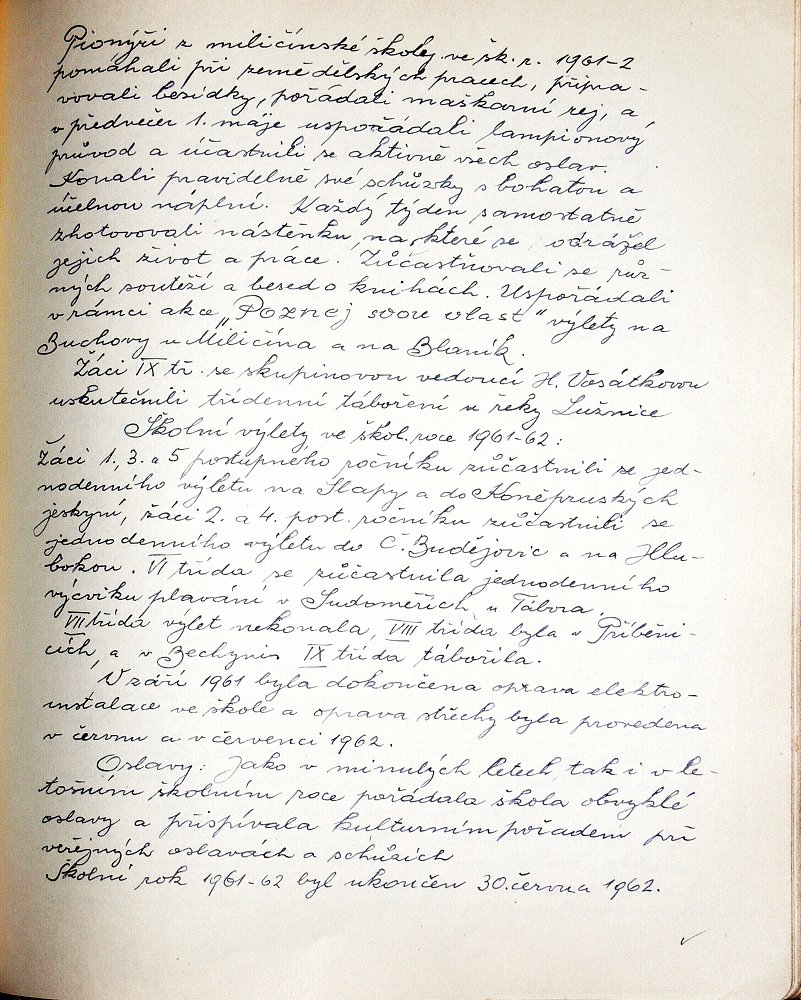 Pionýři z miličínské školy ve šk. r. 1961-2
pomáhali při zemědělských pracech, připra-
vovali besídky, pořádali maškarní rej, a
v předvečer 1. máje uspořádali lampionový
průvod a účastnili se aktivně všech oslav.
Konali pravidelně své schůzky s bohatou a
účelnou náplní. Každý týden samostatně
zhotovovali nástěnku, na které se odrážel
jejich život a práce. Zúčastňovali se růz-
ných soutěží a besed o knihách. Uspořádali
v rámci akce „Poznej svou vlast" výlety na
Buchovy u Miličína a na Blaník.
Žáci IX tř. se skupinovou vedoucí H. Vosátkovou
uskutečnili třídenní táboření u řeky Lužnice
Školní výlety ve škol. roce 1961-62:
Žáci 1., 3. a 5 postupného ročníku zúčastnili se jed-
nodenního výletu na Slapy a do Koněpruských
jeskyní, žáci 2. a 4. post. ročníku zúčastnili se
jednodenního výletu do Č. Budějovic a na Hlu-
bokou. VI třída se zúčastnila jednodenního
výcviku plavání v Sudoměřích u Tábora.
VII třída výlet nekonala, VIII třída byla v Příběni-
cích, a v Bechyni. IX třída tábořila.
V září 1961 byla dokončena oprava elektro-
instalace ve škole a oprava střechy byla provedena
v červnu a v červenci 1962.
Oslavy: Jako v minulých letech, tak i v le-
tošním školním roce pořádala škola obvyklé
oslavy a přispívala kulturním pořadem při
veřejných oslavách a schůzích
Školní rok 1961-62 byl ukončen 30. června 1962.